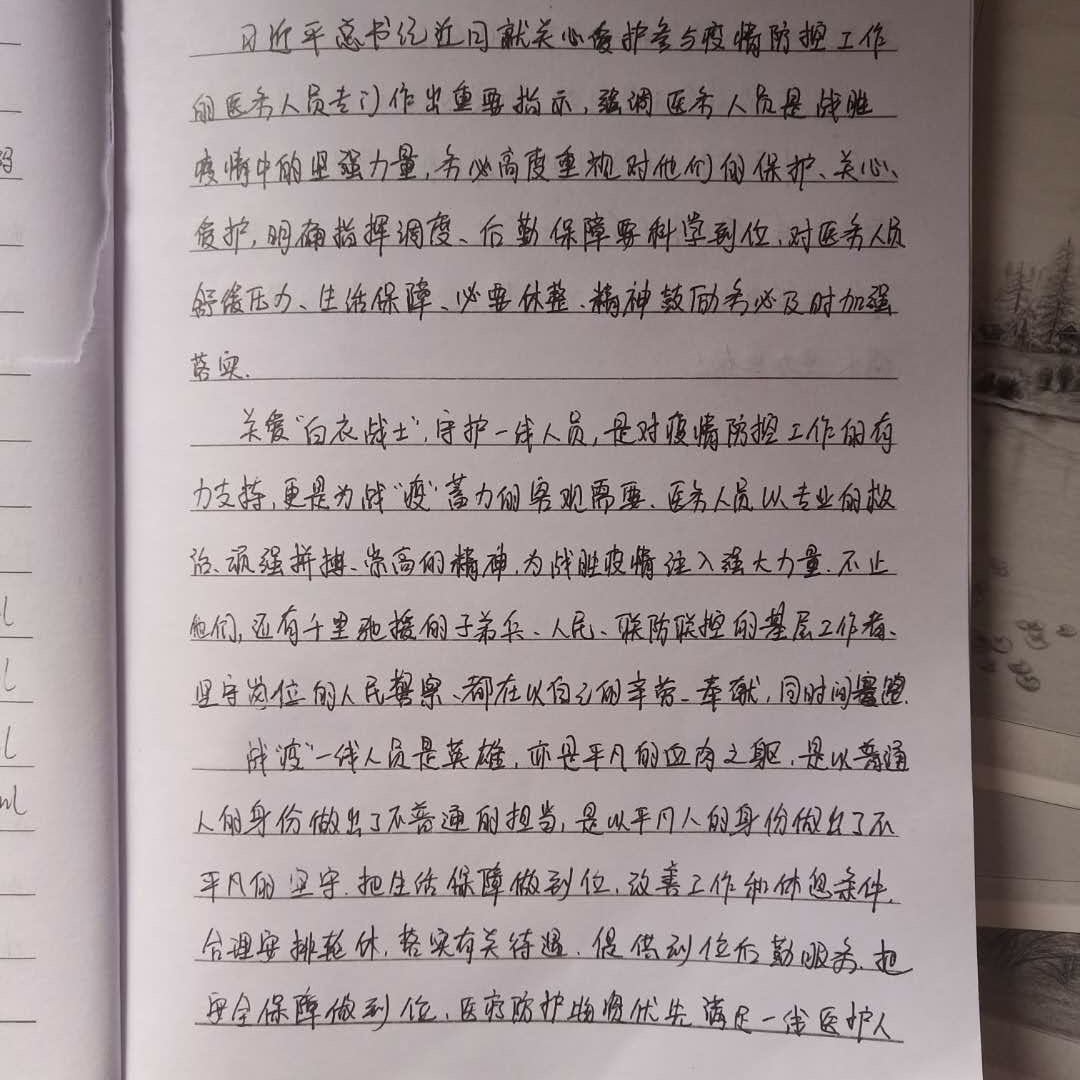 习近平总书纪近日就关心爱护参与疫情防控工作
的医务人员专门作出重要指示，强调医务人员是战胜
疫情中的坚强力量，务必高度重视对他们的保护、关心、
爱护，明确指挥调度、后勤保障要科学到位，对医务人员
舒缓压力、生活保障、必要休整、精神鼓励务必及时加强
落实.
关爱“白衣战士”，守护一线人员，是对疫情防控工作的有
力支持，更是为战“疫”蓄力的客观需要.医务人员以专业的救
治、顽强拼搏、崇高的精神，为战胜疫情注入强大力量.不止
他们，还有千里驰援的子弟兵、人民、联防联控的基层工作者、
坚守岗位的人民警察、都在以自己的辛劳、奉献，同时间赛跑.
战“疫”一线人员是英雄，亦是平凡的血肉之躯，是以普通
人的身份做出了不普通的担当，是以平凡人的身份做出了不
平凡的坚守.把生活保障做到位，改善工作和休息条件，
合理安排轮休，落实有关待遇，提供到位后勤服务.把
安全保障做到位，医疗防护物资优先满足一线医护人
码
ml